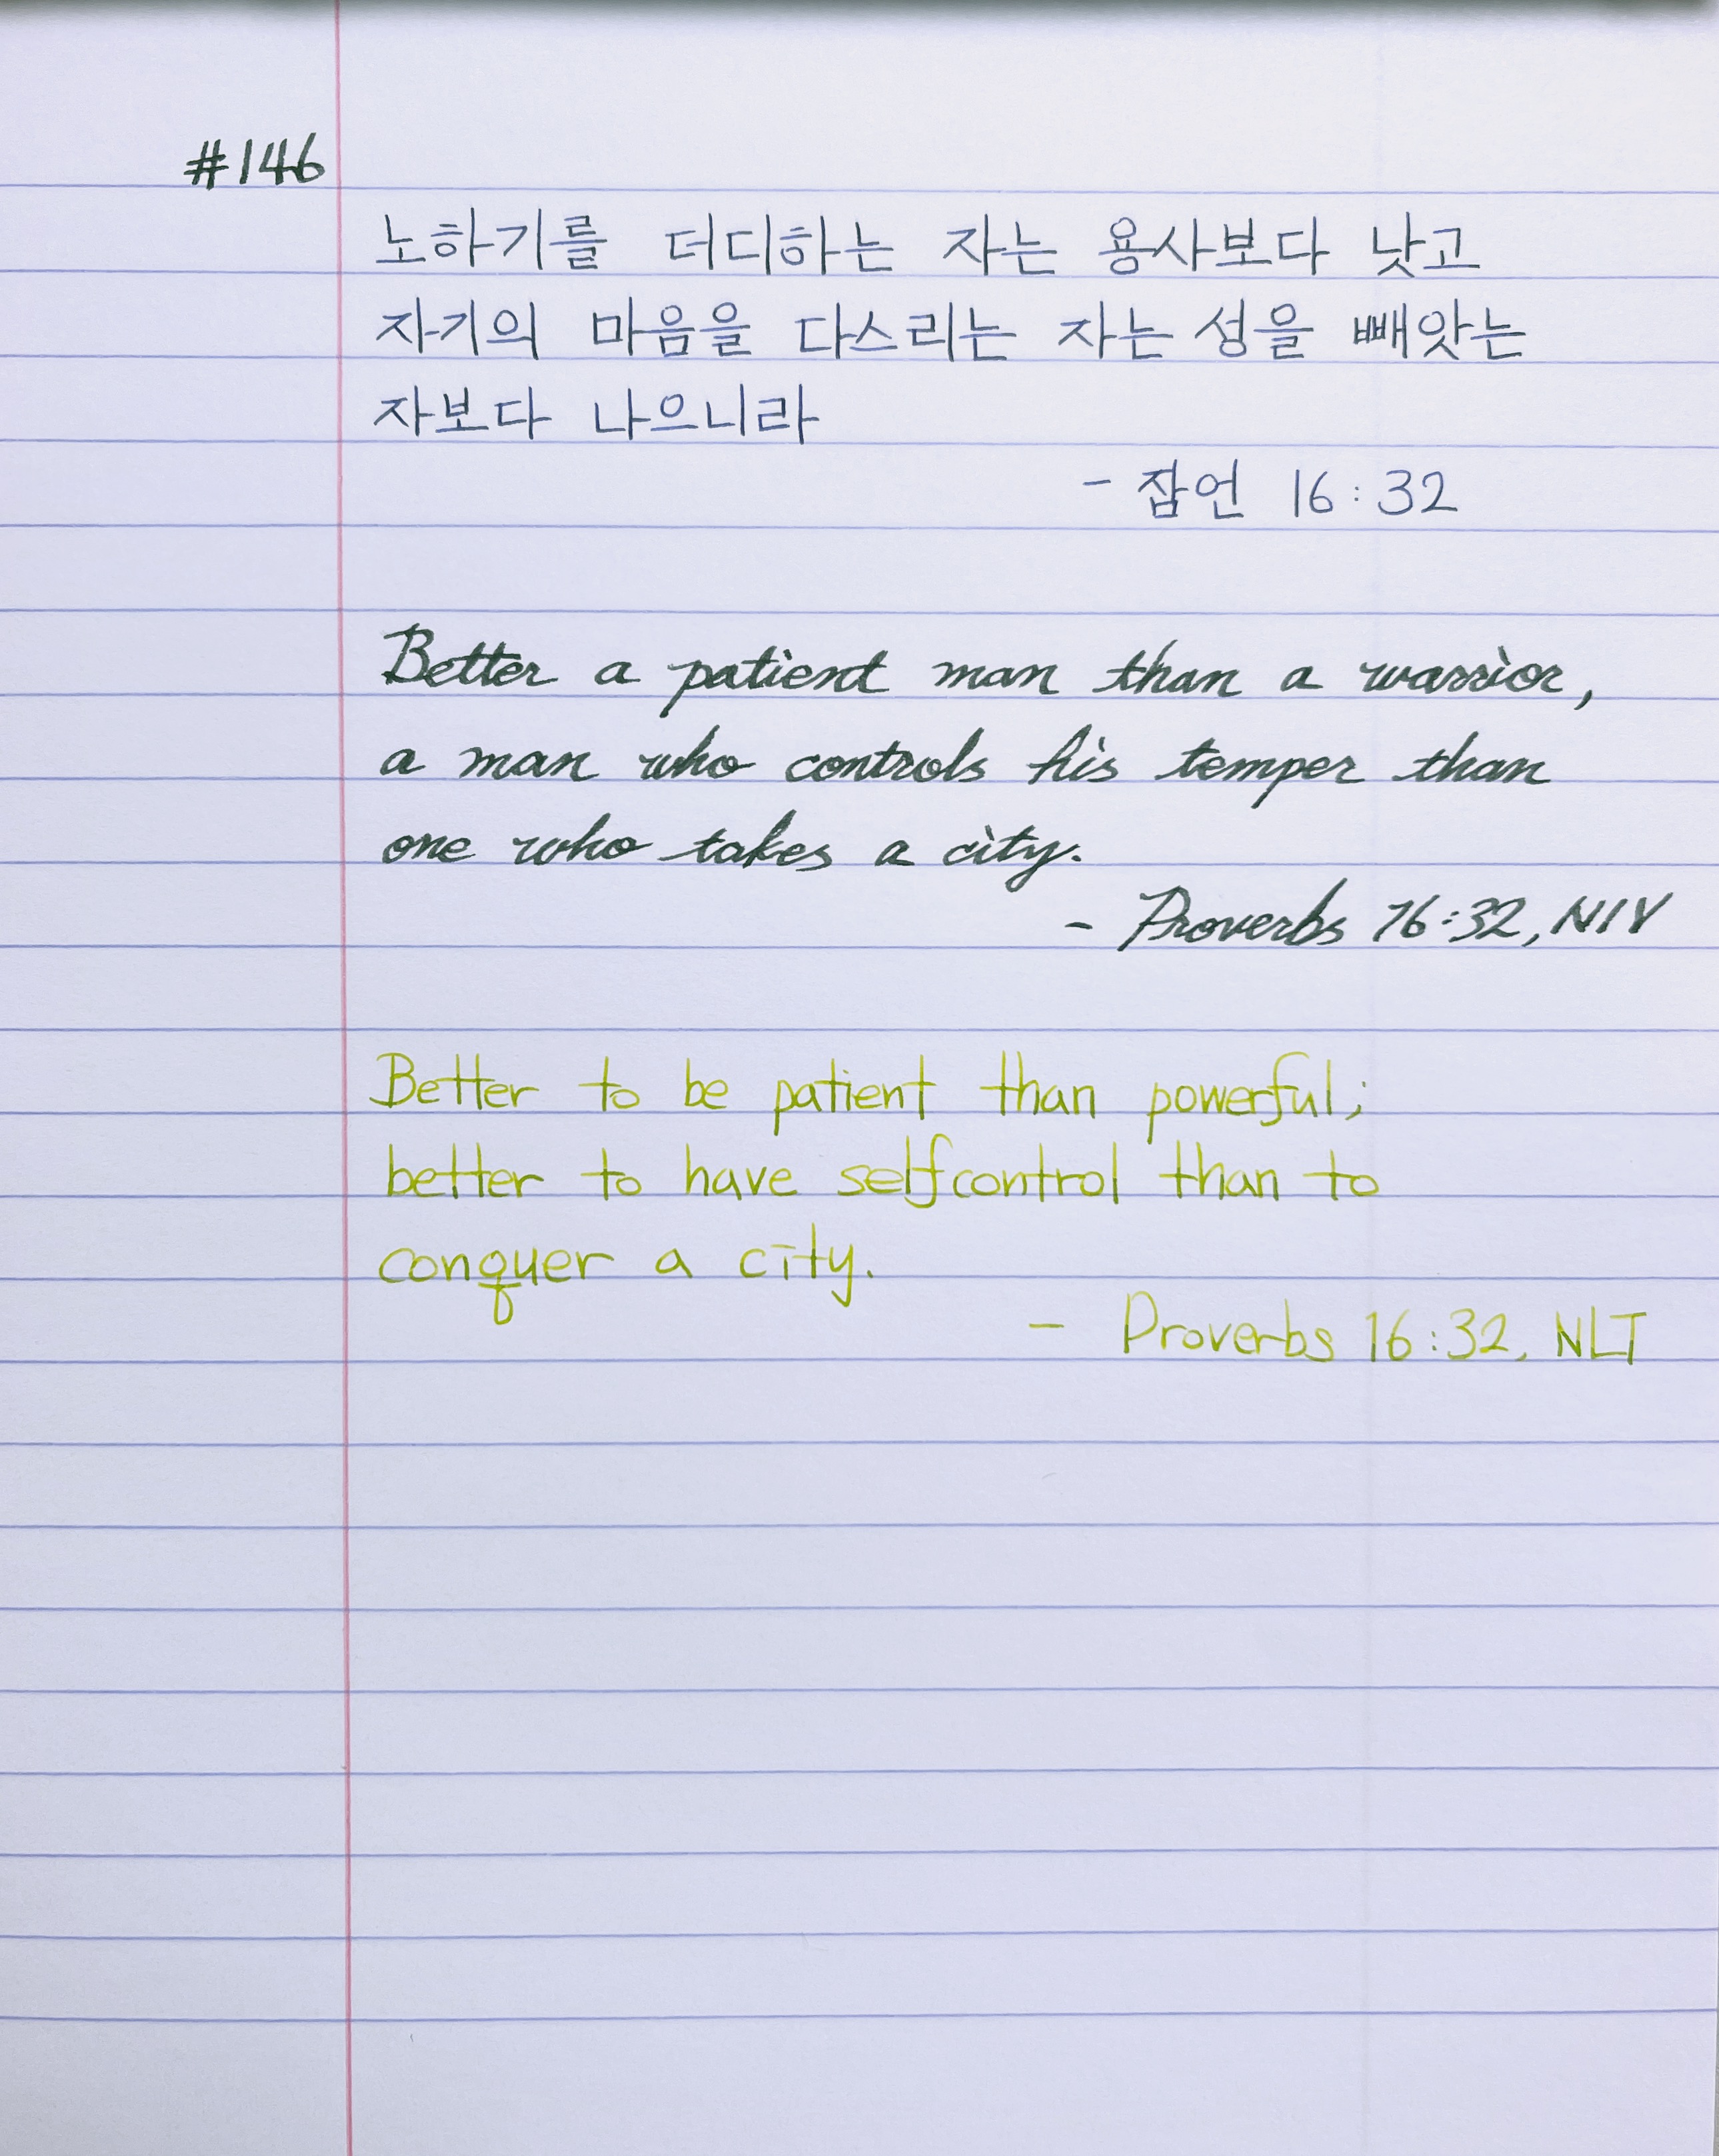 #146
노하기를 더디하는 자는 용사보다 낫고
자기의 마음을 다스리는 자는 성을 빼앗는
자보다 나으니라
- 잠언 16:32
Better a patient man than a warrior,
a man who controls his temper than
one who takes a city.
- Proverbs 16:32, NIV
Better to be patient than powerful;
better to have selfcontrol than to
conquer a city.
- Proverbs 16:32, NLT